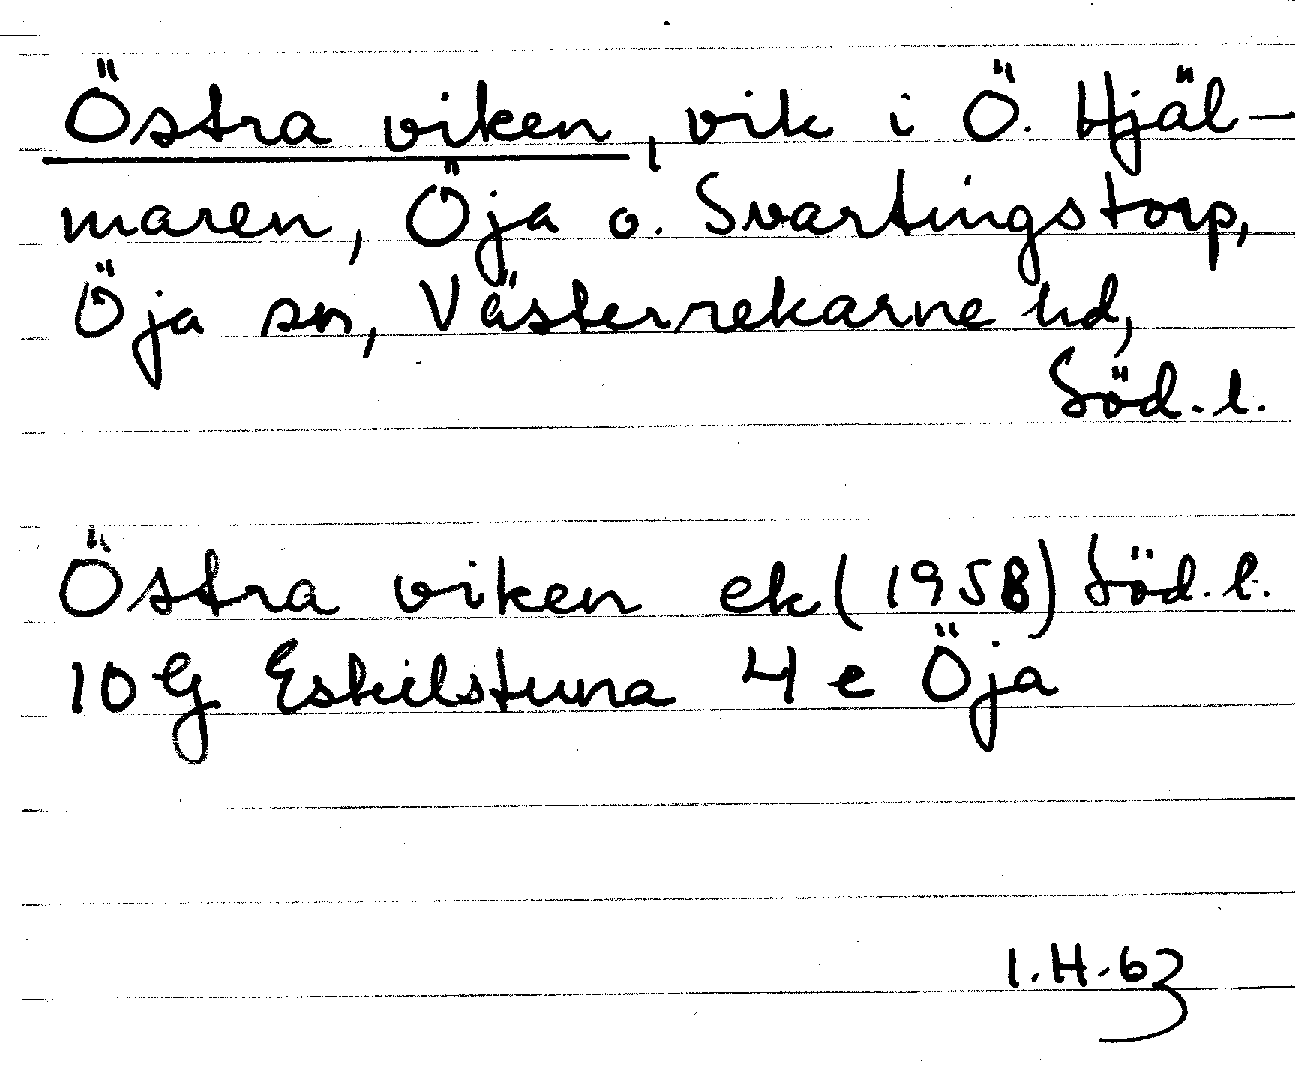 Östra viken, vik i Ö. Hjäl-
maren, Öja o. Svartingstorp,
Öja sn, Västerrekarne hd,
Söd. l.
Östra viken ek (1958) Söd. l.
10 G Eskilstuna 4 e Öja
I.H.63